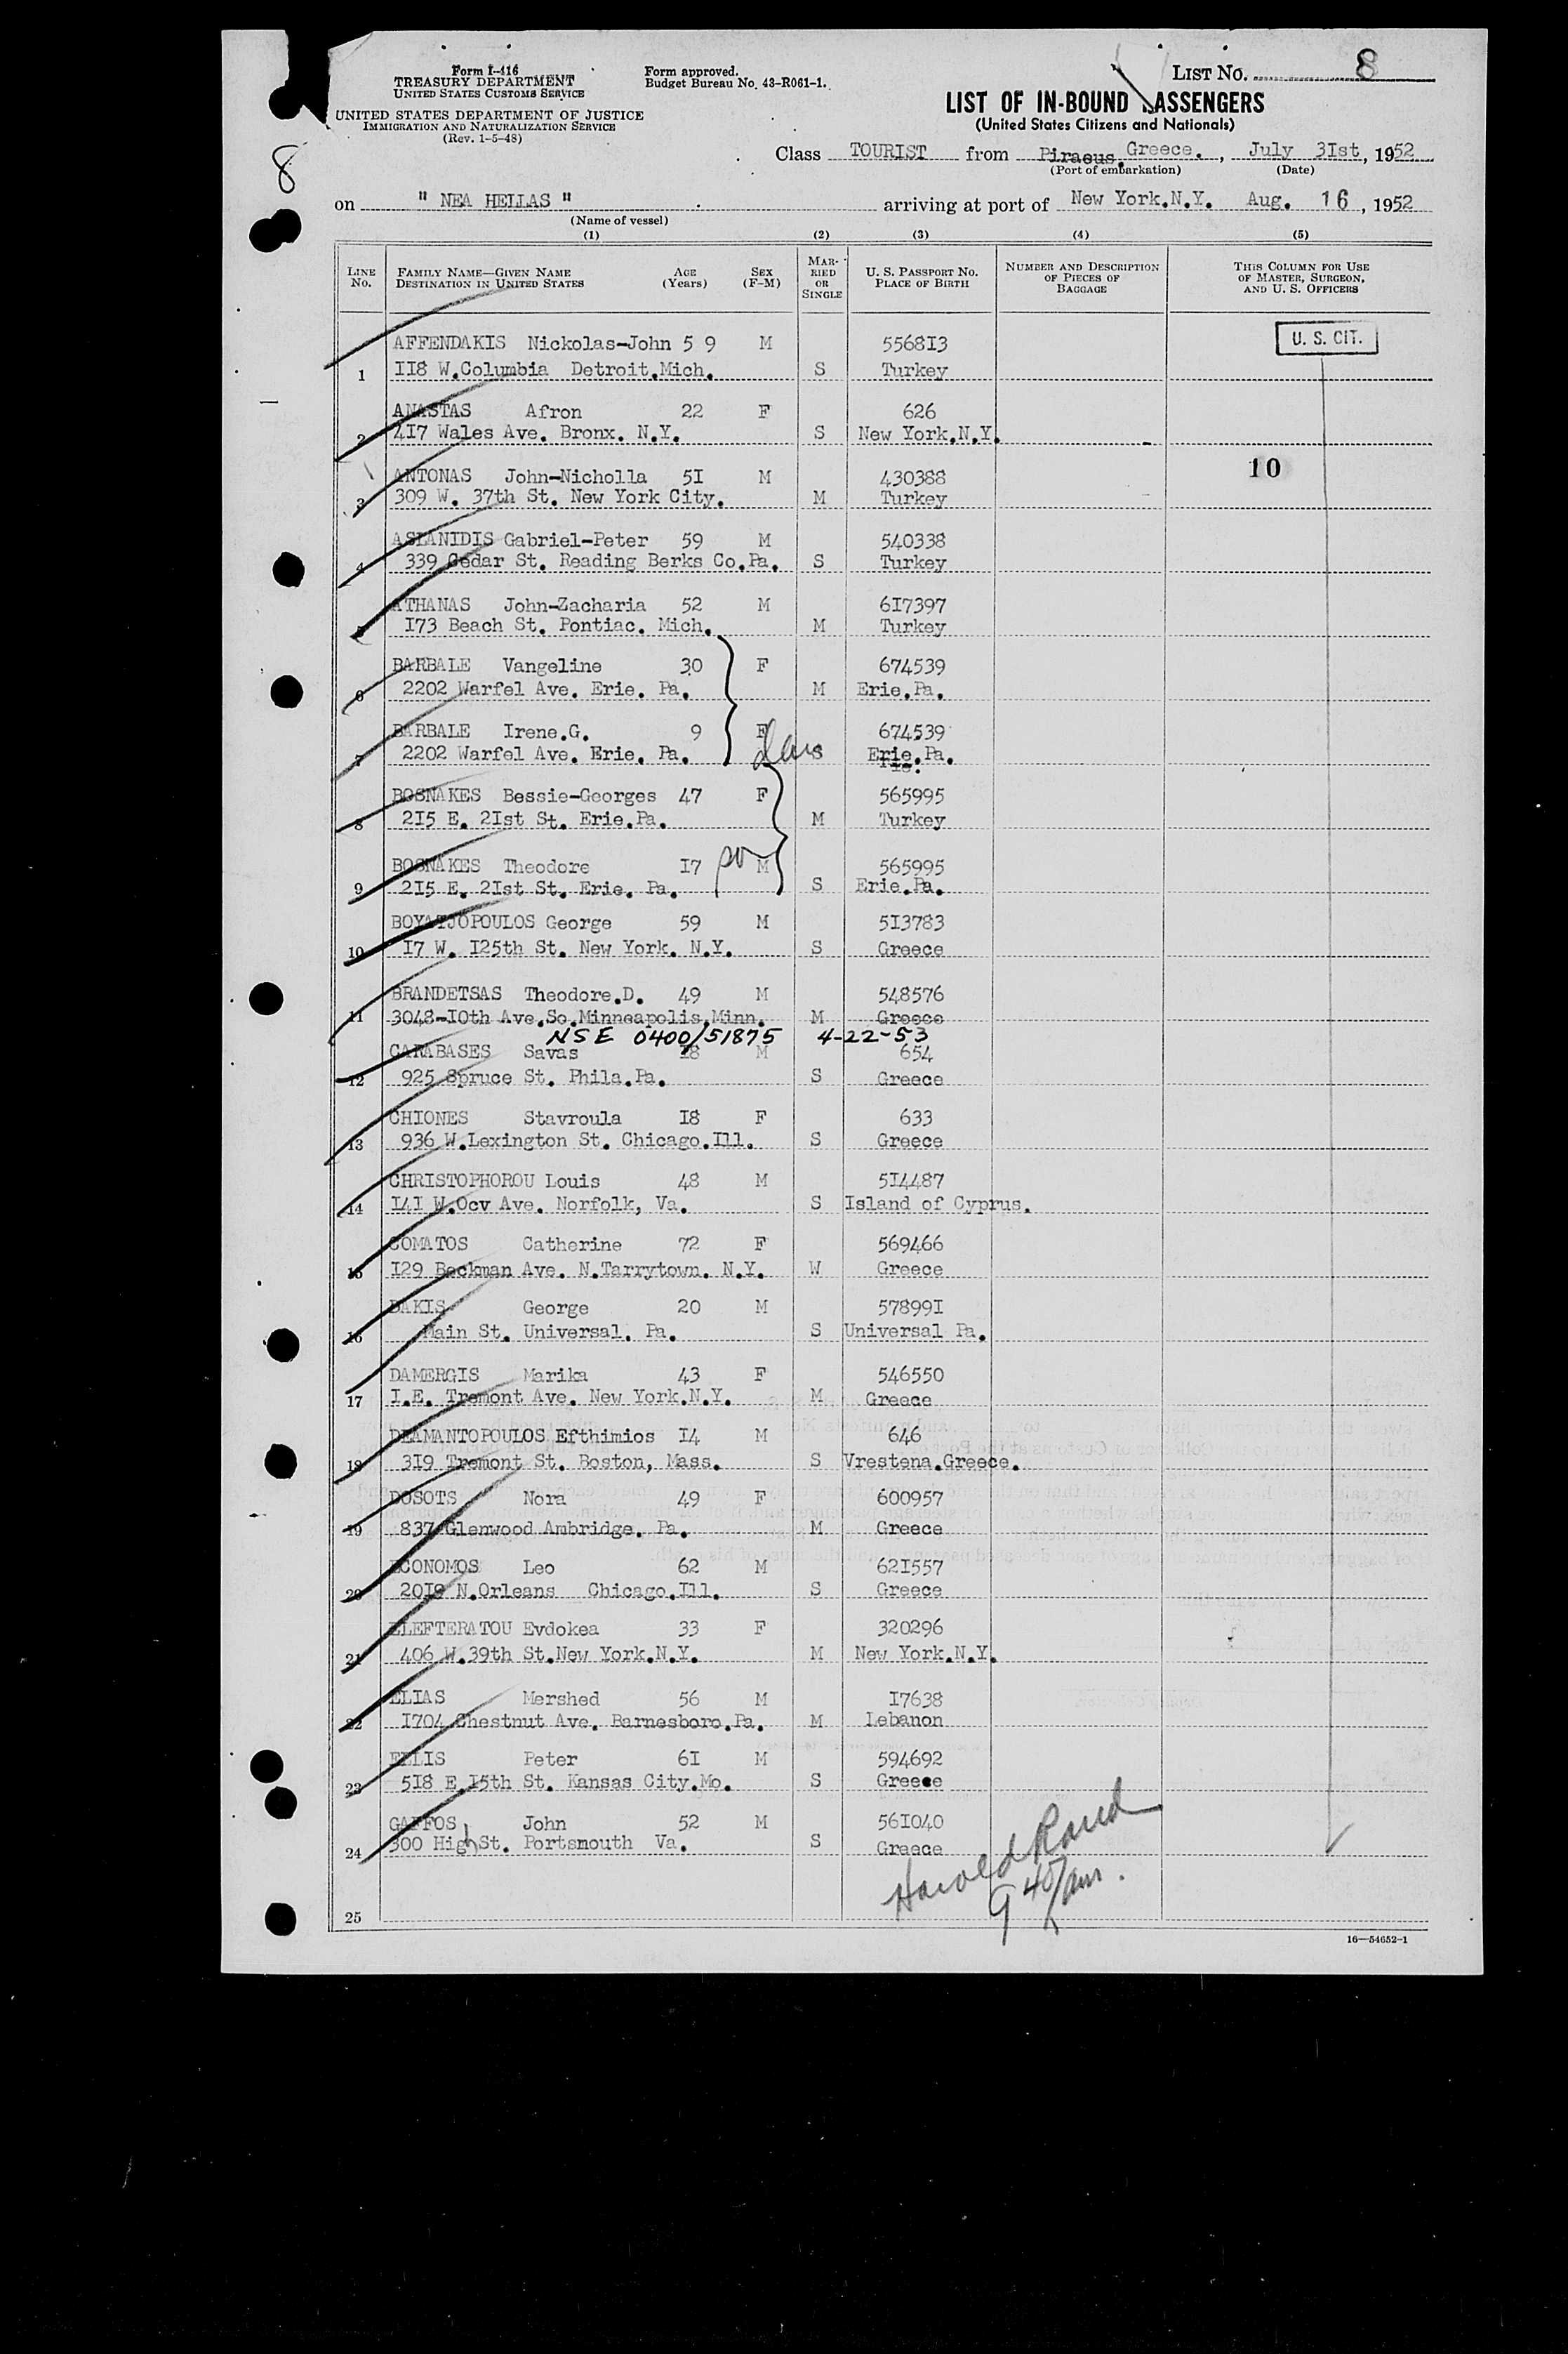 Form I-416
TREASURY DEPARTMENT
UNITED STATES CUSTOMS SERVICE
UNITED STATES DEPARTMENT OF JUSTICE
IMMIGRATION AND NATURALIZATION SERVICE
(Rev. 1-5-48)
Form approved.
Budget Bureau No. 43-R061-1.
LIST NO. 8
LIST OF IN-BOUND PASSENGERS
(United States Citizens and Nationals)
8
Class TOURIST from Piraeus, Greece. , July 3Ist, 1952
(Port of embarkation) (Date)
on " NEA HELLAS " arriving at port of New York.N.Y. Aug. 16, 1952
(Name of vessel)
(1) (2) (3) (4) (5)
LINE NO. FAMILY NAME—GIVEN NAME DESTINATION IN UNITED STATES AGE (Years) SEX (F-M) MARRIED OR SINGLE U. S. PASSPORT NO. PLACE OF BIRTH NUMBER AND DESCRIPTION OF PIECES OF BAGGAGE THIS COLUMN FOR USE OF MASTER, SURGEON, AND U. S. OFFICERS
AFFENDAKIS Nickolas-John 5 9 M 5568I3 U. S. CIT.
1 II8 W.Columbia Detroit.Mich. S Turkey
ANASTAS Afron 22 F 626
2 4I7 Wales Ave. Bronx. N.Y. S New York.N.Y.
ANTONAS John-Nicholla 5I M 430388 10
3 309 W. 37th St. New York City. M Turkey
ASLANIDIS Gabriel-Peter 59 M 540338
4 339 Cedar St. Reading Berks Co.Pa. S Turkey
ATHANAS John-Zacharia 52 M 6I7397
5 I73 Beach St. Pontiac. Mich. M Turkey
BARBALE Vangeline 30 F 674539
6 2202 Warfel Ave. Erie. Pa. M Erie.Pa.
BARBALE Irene.G. 9 F 674539
7 2202 Warfel Ave. Erie. Pa. S Erie.Pa.
BOSNAKES Bessie-Georges 47 F 565995
8 2I5 E. 2Ist St. Erie.Pa. M Turkey
BOSNAKES Theodore I7 M 565995
9 2I5 E. 2Ist St. Erie. Pa. S Erie.Pa.
BOYATJOPOULOS George 59 M 5I3783
10 I7 W. I25th St. New York. N.Y. S Greece
BRANDETSAS Theodore.D. 49 M 548576
11 3048-I0th Ave.So.Minneapolis.Minn. M Greece
NSE 0400/51875 4-22-53
CARABASES Savas I8 M 654
12 925 Spruce St. Phila.Pa. S Greece
CHIONES Stavroula I8 F 633
13 936 W.Lexington St. Chicago.Ill. S Greece
CHRISTOPHOROU Louis 48 M 5I4487
14 I4I W.Ocv Ave. Norfolk, Va. S Island of Cyprus.
COMATOS Catherine 72 F 569466
15 I29 Beckman Ave. N.Tarrytown. N.Y. W Greece
DAKIS George 20 M 57899I
16 Main St. Universal. Pa. S Universal Pa.
DAMERGIS Marika 43 F 546550
17 I.E. Tremont Ave. New York.N.Y. M Greece
DIAMANTOPOULOS Efthimios I4 M 646
18 3I9 Tremont St. Boston, Mass. S Vrestena.Greece.
DOSOTS Nora 49 F 600957
19 837 Glenwood Ambridge. Pa. M Greece
ECONOMOS Leo 62 M 62I557
20 20I8 N.Orleans Chicago.Ill. S Greece
ELEFTERATOU Evdokea 33 F 320296
21 406 W.39th St.New York.N.Y. M New York.N.Y.
ELIAS Mershed 56 M I7638
22 I704 Chestnut Ave. Barnesboro.Pa. M Lebanon
ELLIS Peter 6I M 594692
23 5I8 E.I5th St. Kansas City.Mo. S Greece
GAFFOS John 52 M 56I040
24 300 High St. Portsmouth Va. S Greece
Harold Rand
9 40/am.
25
16—54652-1